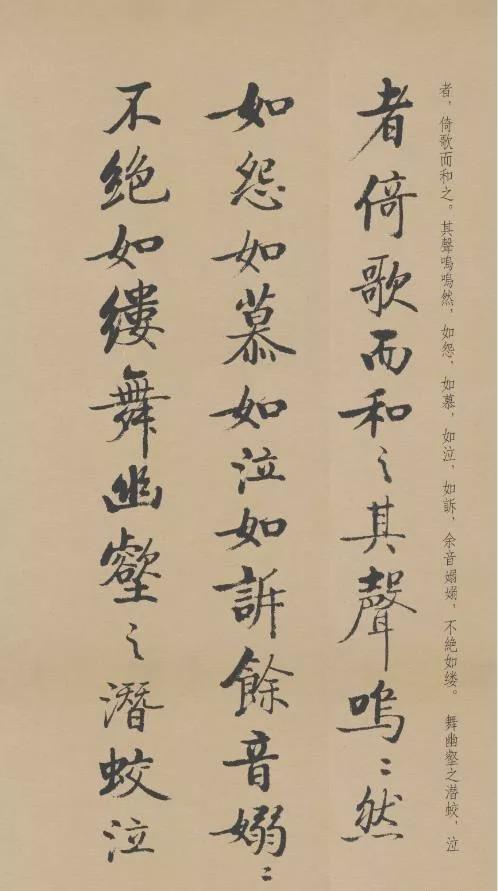 者，倚歌而和之。其聲嗚嗚然，如怨，如慕，如泣，如訴，余音嫋嫋，不絶如缕。 舞幽壑之潜蛟，泣
者倚歌而和之其聲嗚〻然
如怨如慕如泣如訴餘音嫋〻
不絶如縷舞幽壑之潛蛟泣